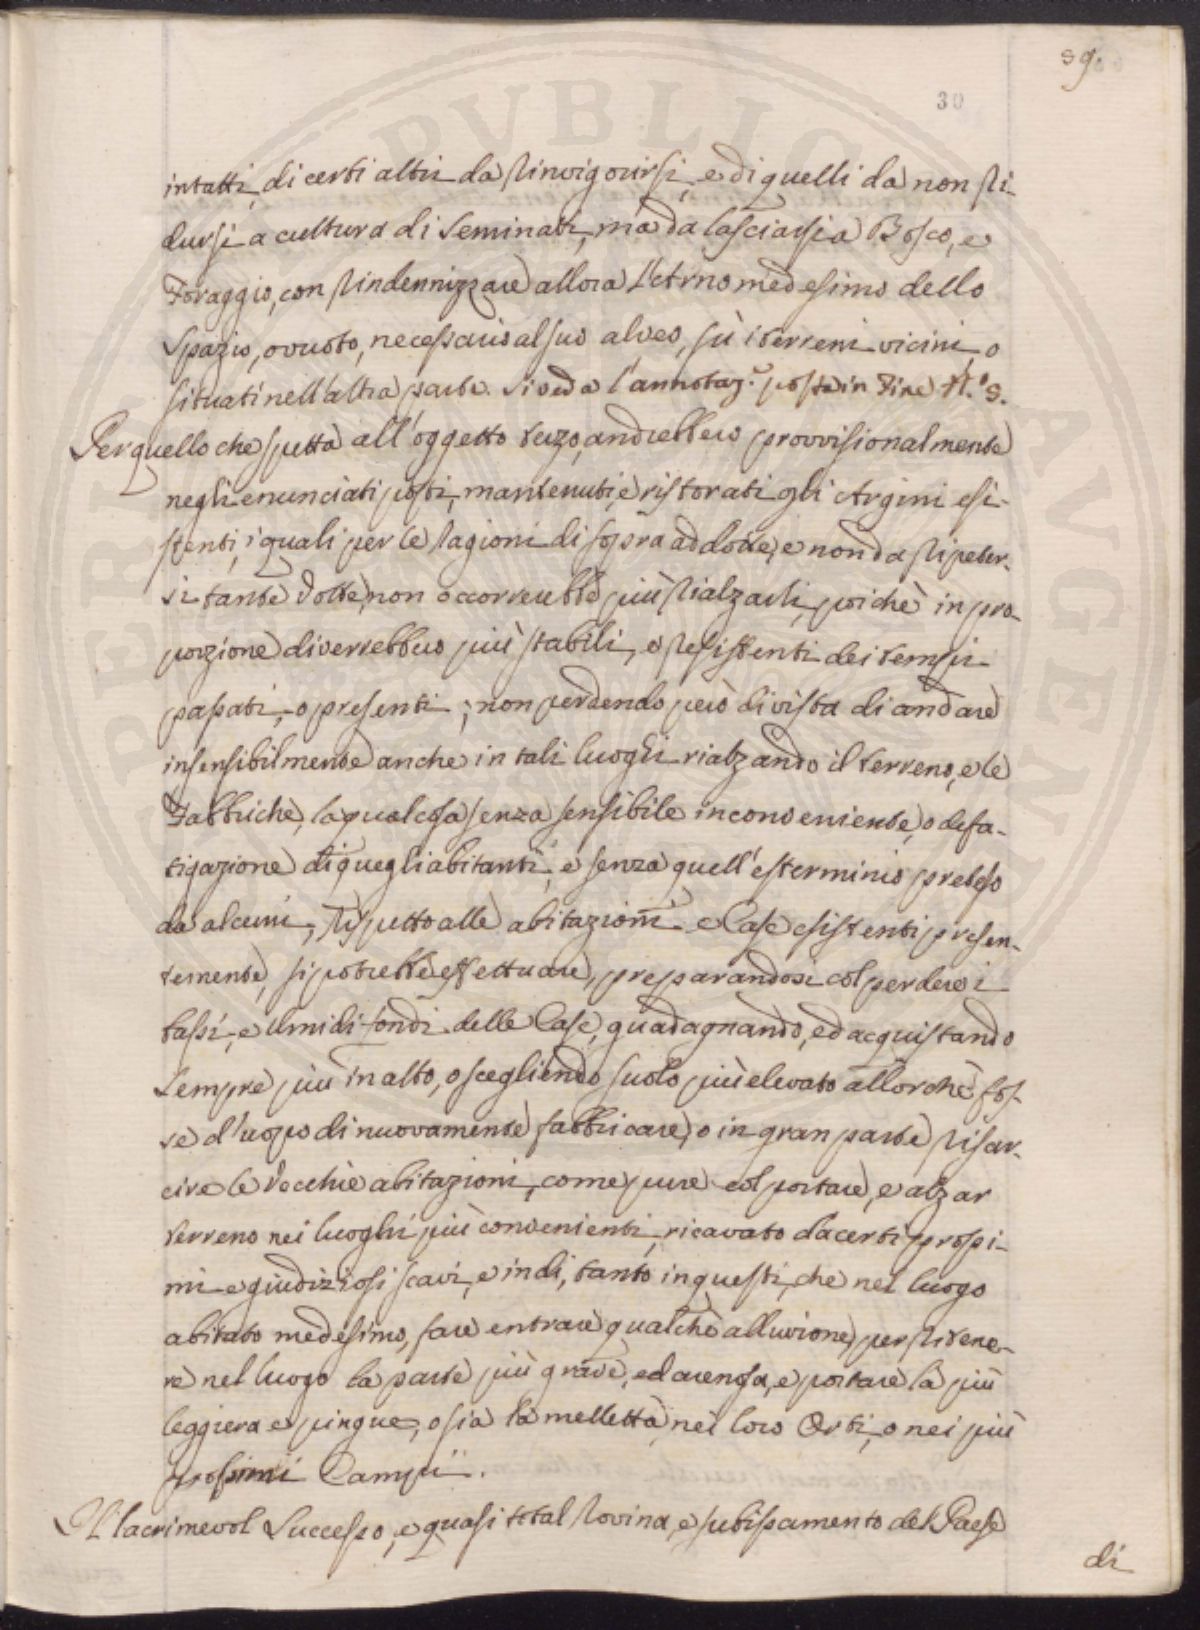 59.
30
intatti, di certi altri da rinvigorirsi, e di quelli da non ri-
dursi a cultura di seminati, ma da lasciarsi a Bosco, e
Foraggio, con rindennizzare allora l'Etrno medesimo dello
spazio, o vuoto, necessario al suo alveo, sù i terreni vicini, o
situati nell'altra parte. Si veda l'annotaz.e posta in Fine N.o 5.
Per quello che spetta all'oggetto terzo, andrebbero provvisionalmente
negli enunciati posti, mantenuti, e ristorati gli Argini esi-
stenti, i quali per le ragioni di sopra addotte, e non da ripeter-
si tante volte, non occorrerebbe più rialzarli, poichè in pro-
porzione diverrebbero più stabili, e resistenti dei tempi
passati, o presenti; non perdendo però di vista di andare
insensibilmente anche in tali luoghi rialzando il terreno, e le
Fabbriche, la qual cosa senza sensibile inconveniente, o defa-
tigazione di quegli abitanti, e senza quell'esterminio preteso
da alcuni, rispetto alle abitazioni e Case esistenti presen-
temente, si potrebbe effettuare, preparandosi col perdere i
bassi, e umidi fondi delle Case, guadagnando, ed acquistando
sempre più in alto, o scegliendo suolo più elevato allorchè fos-
se d'uopo di nuovamente fabbricare, o in gran parte risar-
cire le vecchie abitazioni, come pure col portare, e alzar
terreno nei luoghi più convenienti, ricavato da certi prossi-
mi e giudiziosi scavi, e indi, tanto in questi, che nel luogo
abitato medesimo, fare entrare qualche alluvione, per ritene-
re nel luogo la parte più grave, ed arenosa, e portare la più
leggiera e pingue, o sia la melletta, nei loro Orti, o nei più
prossimi Campi.
Il lacrimevol successo, e quasi total rovina, e subissamento del Paese
di
PVBLIC
AVG